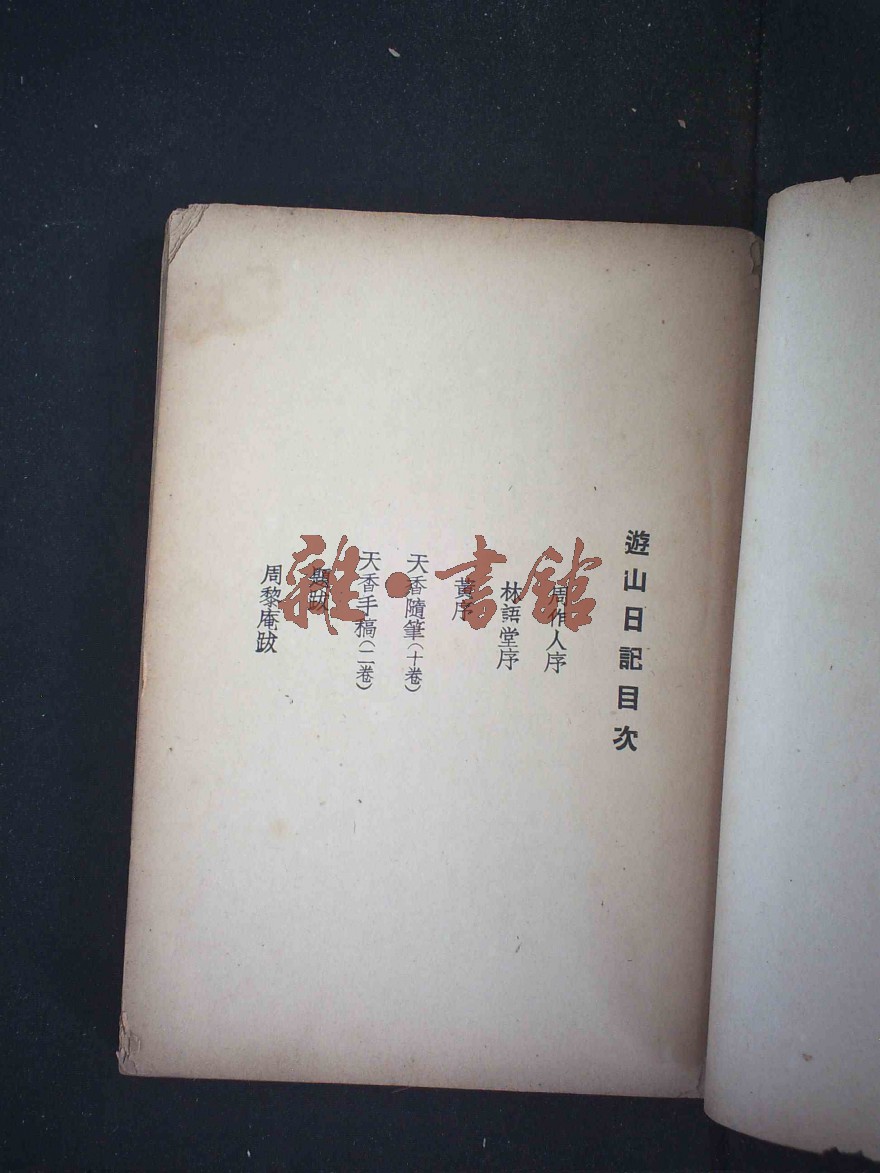 遊山日記目次
周作人序
林語堂序
黃序
天香隨筆(十卷)
天香手稿(二卷)
跋
周黎庵跋
雜·書館